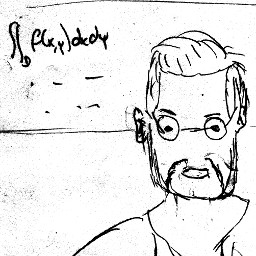 ∬_D f(x,y)dxdy